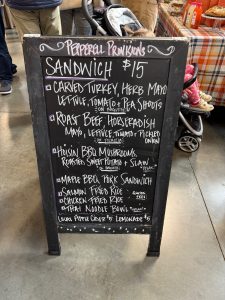 Pepperell Provisions
SANDWICH $15
CARVED TURKEY, HERB MAYO
LETTUCE, TOMATO + PEA SHOOTS
ROAST BEEF, HORSERADISH
MAYO, LETTUCE TOMATO + PICKLED
ONION
HOISIN BBQ MUSHROOMS,
ROASTED SWEET POTATO + SLAW
MAPLE BBQ PORK SANDWICH
SALMON FRIED RICE
CHICKEN FRIED RICE
THAI NOODLE BOWL
APPLE CIDER $5 LEMONADE $5